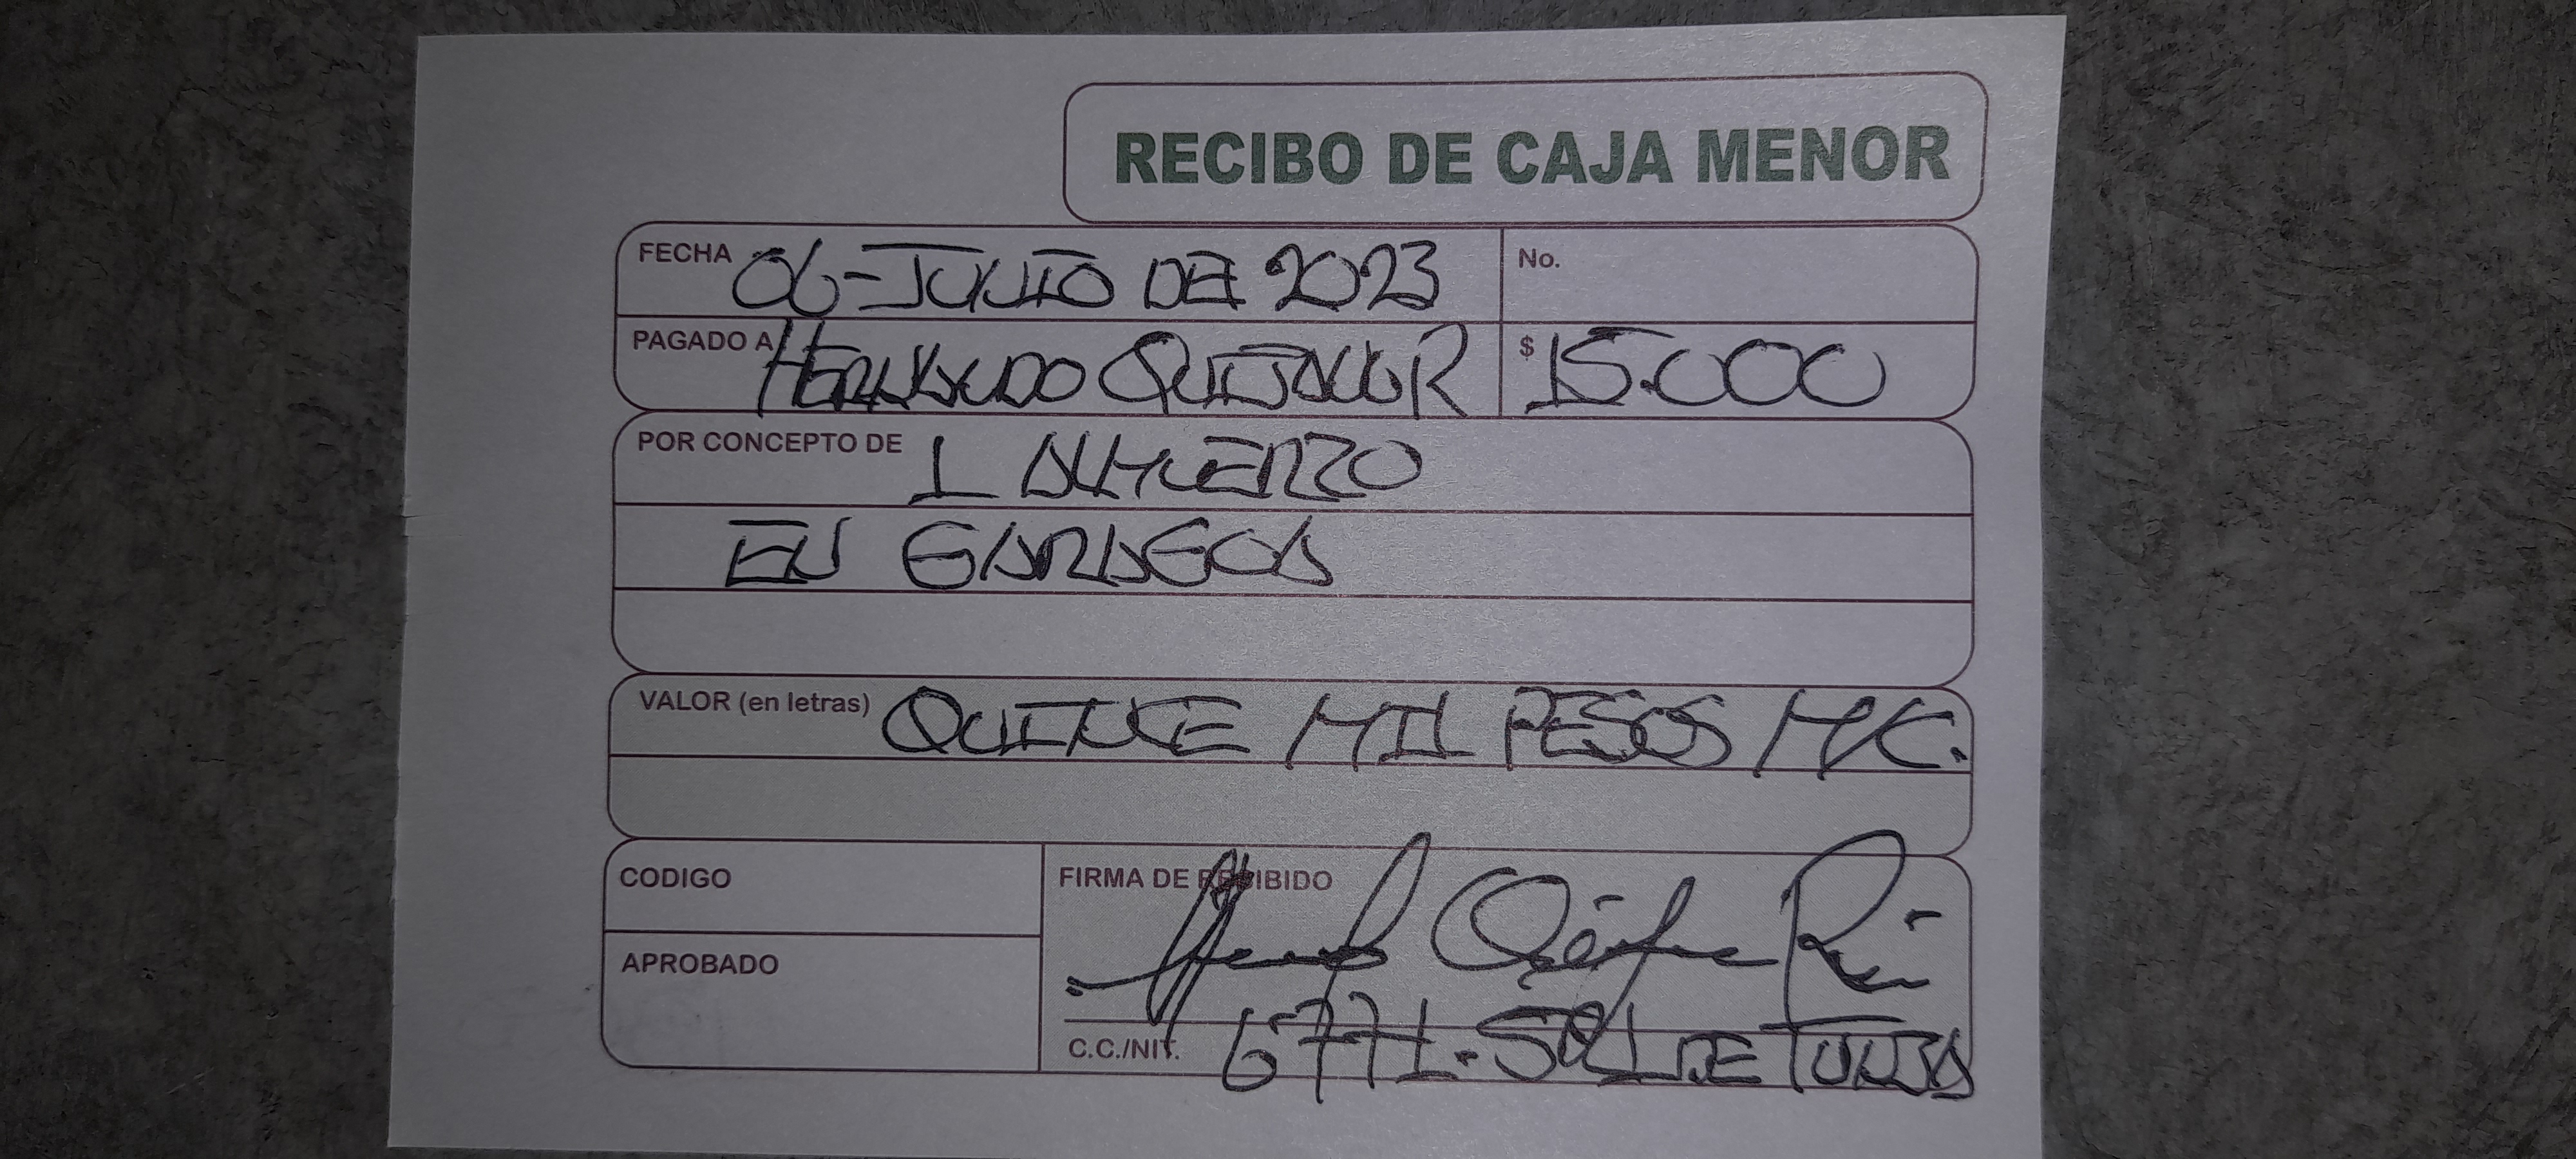 RECIBO DE CAJA MENOR
FECHA 06-JULIO DE 2023 No.
PAGADO A HERNANDO R $ 15.000
POR CONCEPTO DE 1 ALMUERZO
EN GARAGOA
VALOR (en letras) QUINCE MIL PESOS M/C.
CODIGO FIRMA DE RECIBIDO
APROBADO
C.C./NIT. DE TUNJA